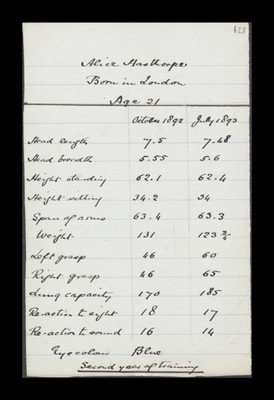 123
Alice Hasthorpe
Born in London
Age 21
October 1892 July 1893
Head length 7.5 7.48
Head breadth 5.55 5.6
Height standing 62.1 62.4
Height sitting 34.2 34
Span of arms 63.4 63.3
Weight 131 123 3/4
Left grasp 46 60
Right grasp 46 65
Lung capacity 170 185
Re-action to sight 18 17
Re-action to sound 16 14
Eyecolour Blue
Second year of training